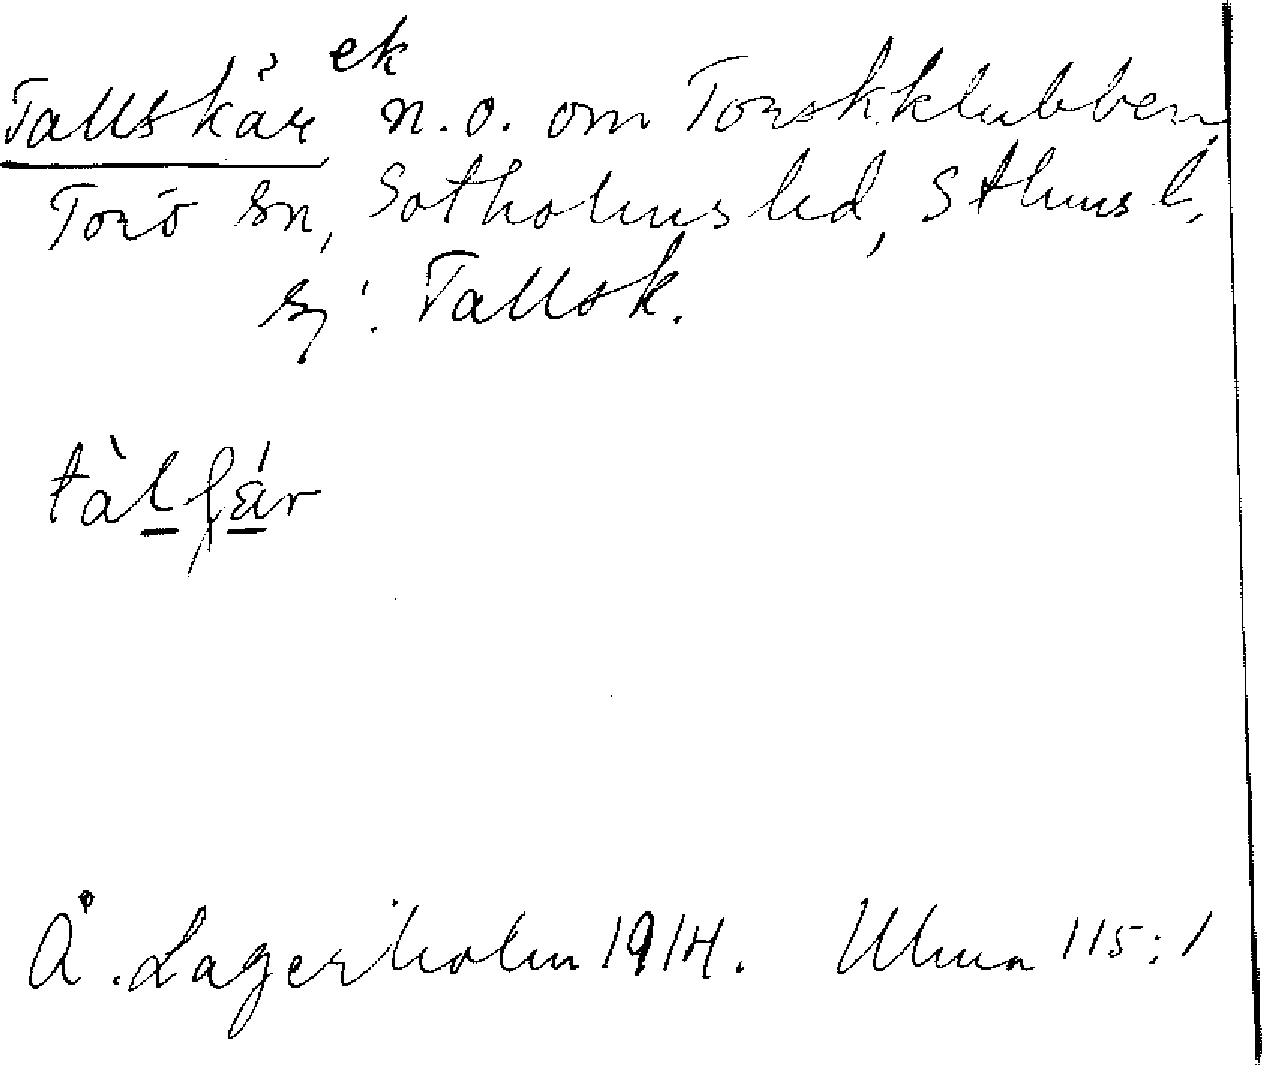 Tallskär ek n.o. om Torskklubben,
Torö sn, Sotholms hd, Sthms l.
sj: Tallsk.
tàlʃä́r
Å. Lagerholm 1914. Uhma 115:1